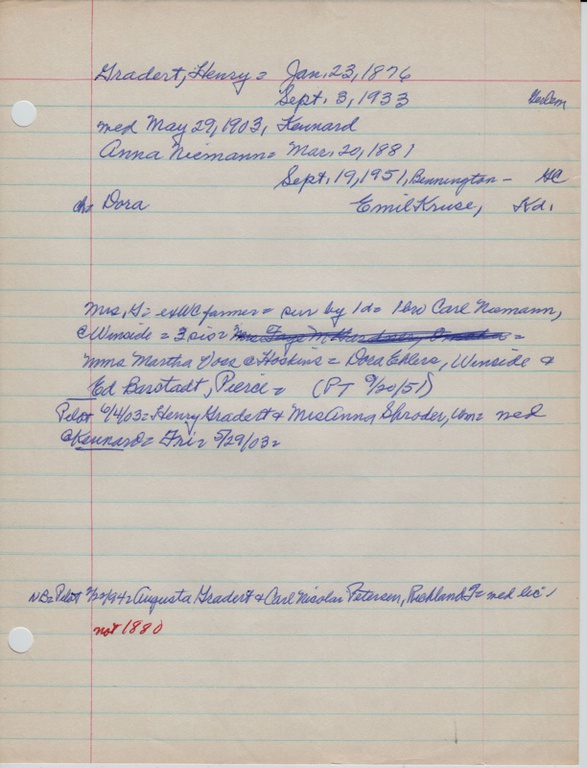 Gradert, Henry = Jan. 23, 1876
Sept. 3, 1933
med May 29, 1903, Kennard
Anna Niemann = Mar. 20, 1881
Sept. 19, 1951, Bennington -
ch = Dora Emil Kruse, Kd.
Mrs. G = ex WC farmer = sur by 1 d = 1 bro Carl Niemann,
@ Winside = 3 sis =
Mmes Martha Voss @ Hoskins = Dora Ehlers, Winside &
Ed Barstadt, Pierce = (PT 9/20/51)
Pilot 6/4/03 = Henry Gradert & Miss Anna Shroder, = med
@ Kennard = Fri = 5/29/03 =
NB = Pilot = Augusta Gradert & Carl Nicolai Petersen, Richland = med lic
not 1880